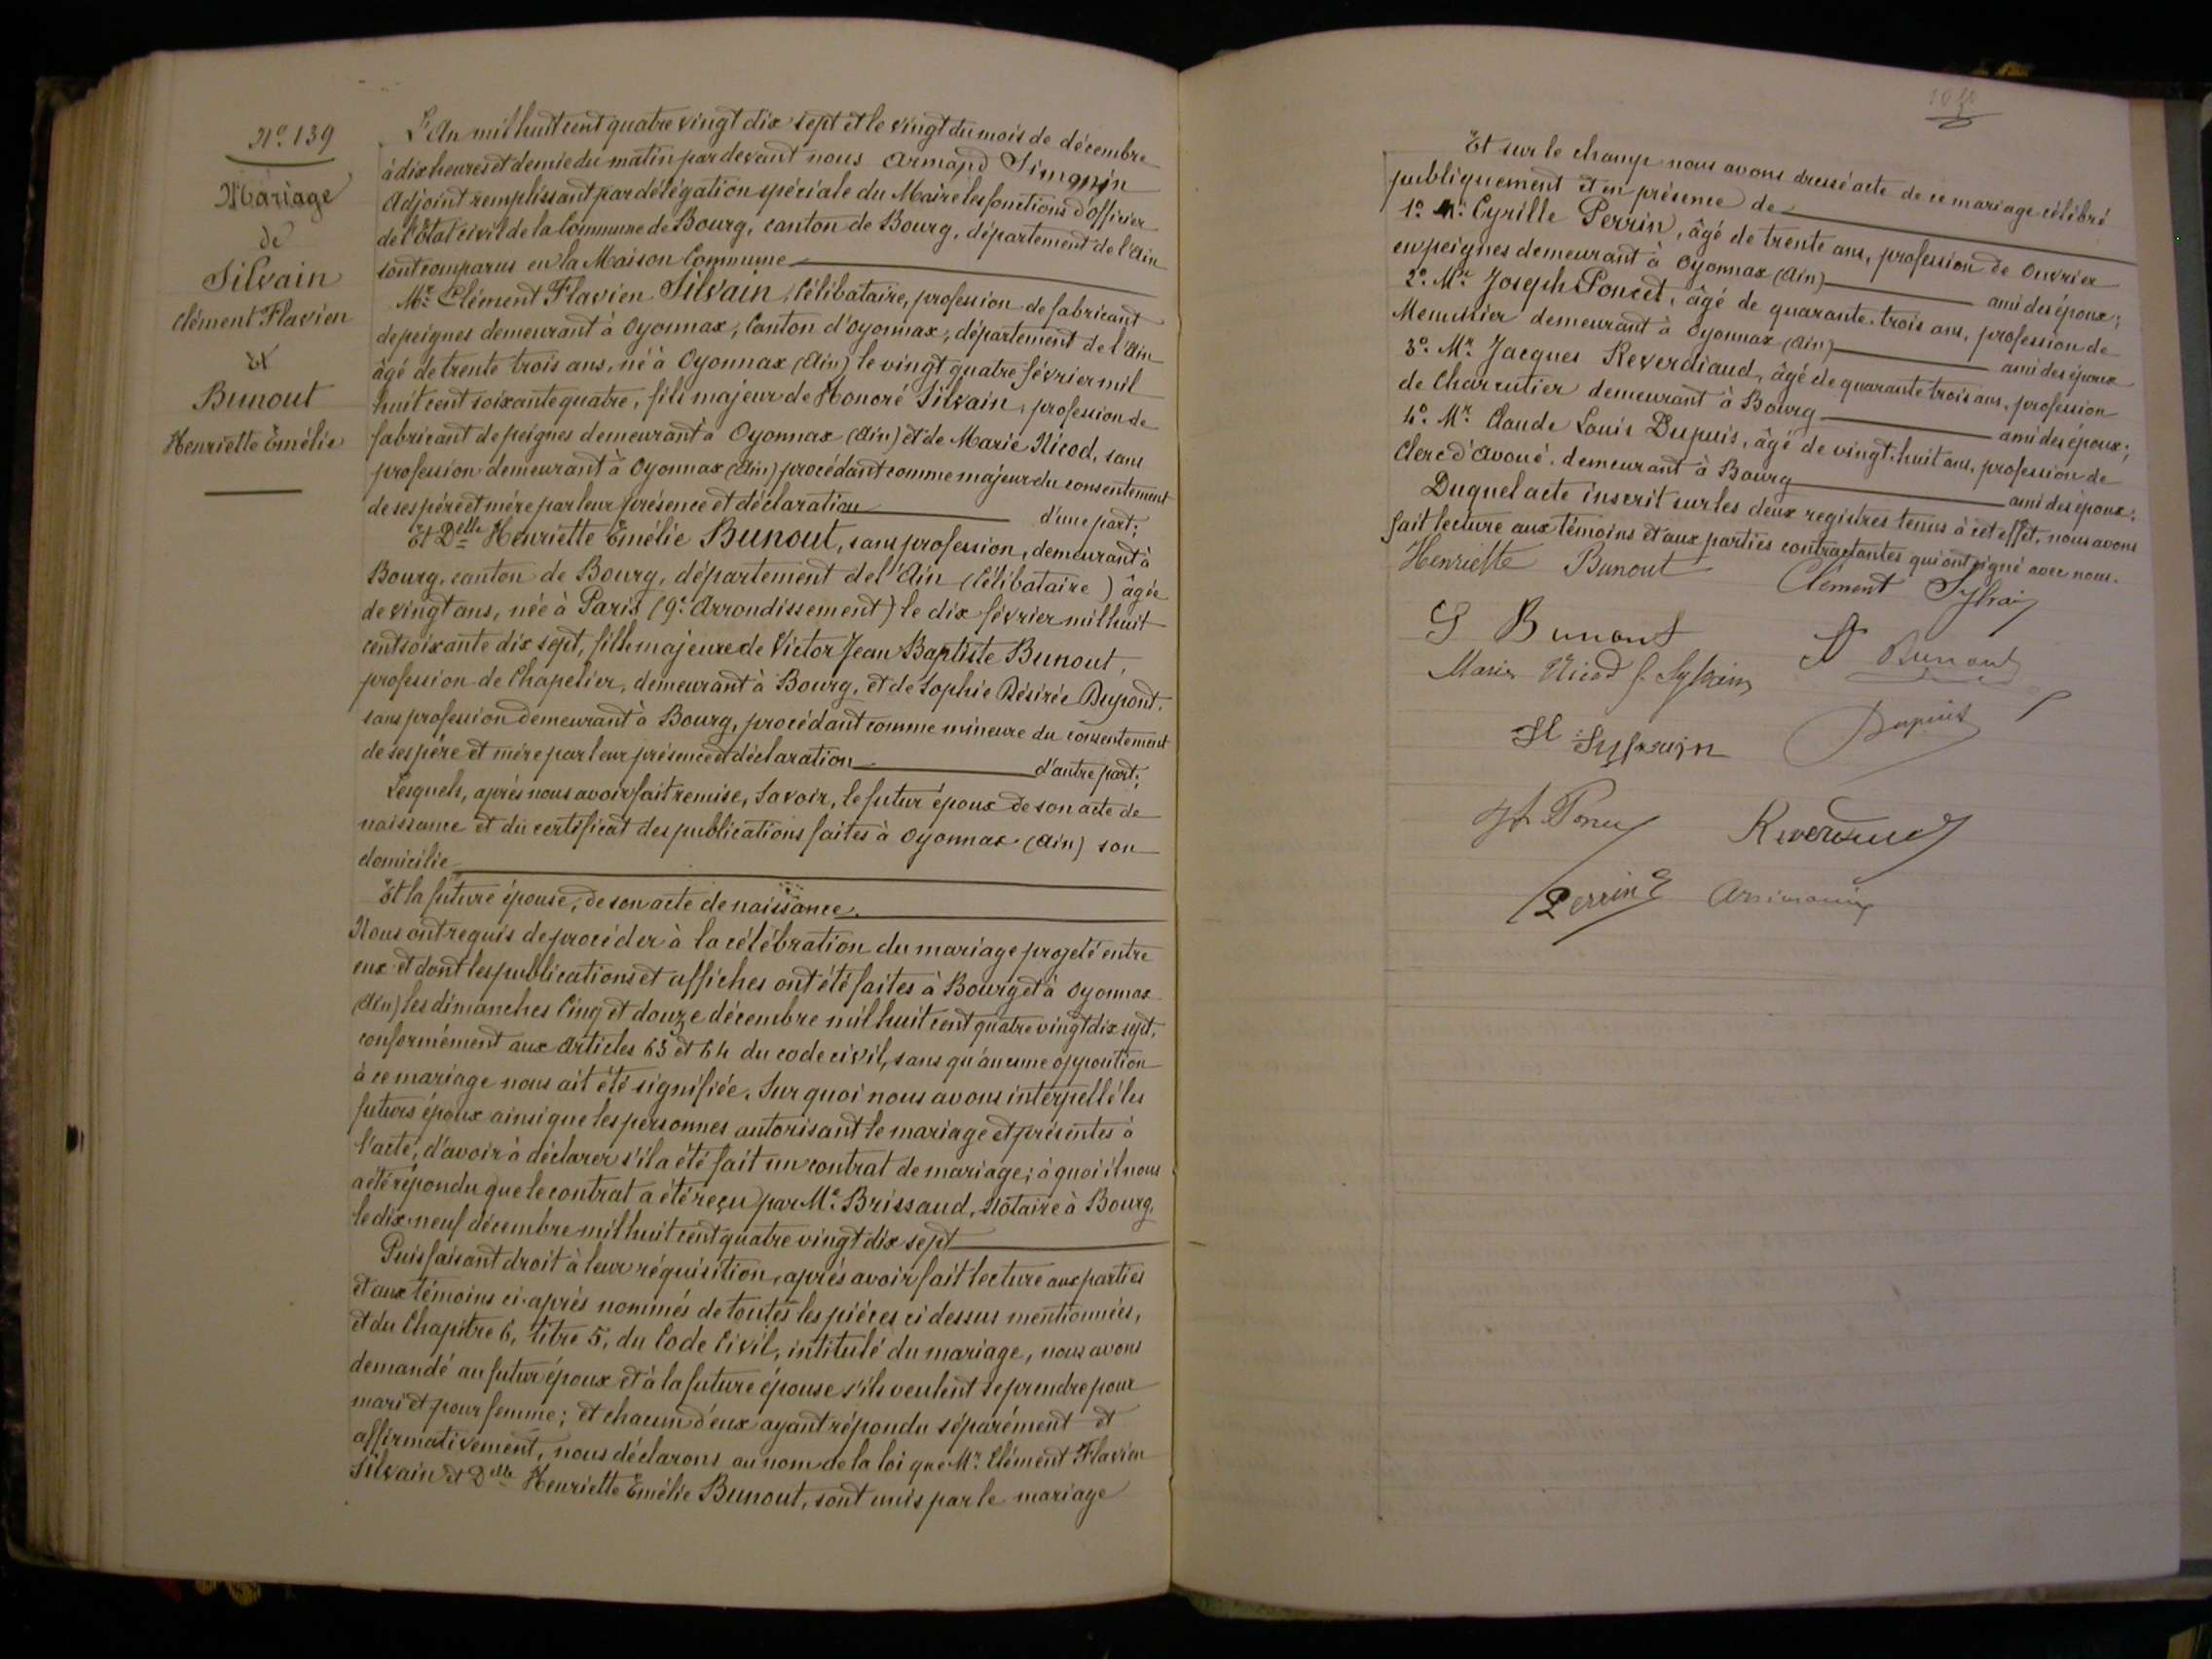 No 139
Mariage
de
Silvain
Clément Flavien
et
Bunout
Henriette Emélie
L'An mil huit cent quatre vingt dix sept et le vingt du mois de décembre
à dix heures et demie du matin par devant nous Armand Simonin
Adjoint remplissant par délégation spéciale du Maire les fonctions d'officier
de l'Etat civil de la Commune de Bourg, canton de Bourg, département de l'Ain
sont comparus en la Maison Commune
Mr Clément Flavien Silvain, Célibataire, profession de fabricant
de peignes demeurant à Oyonnax, Canton d'Oyonnax, département de l'Ain
âgé de trente trois ans, né à Oyonnax (Ain) le vingt quatre février mil
huit cent soixante quatre, fils majeur de Honoré Silvain, profession de
fabricant de peignes demeurant à Oyonnax (Ain) et de Marie Nicod, sans
profession demeurant à Oyonnax (Ain) procédant comme majeur du consentement
de ses père et mère par leur présence et déclaration d'une part;
Et Delle Henriette Emélie Bunout, sans profession, demeurant à
Bourg, canton de Bourg, département de l'Ain (Célibataire) âgée
de vingt ans, née à Paris (9e Arrondissement) le dix février mil huit
cent soixante dix sept, fille majeure de Victor Jean Baptiste Bunout,
profession de Chapelier, demeurant à Bourg, et de Sophie Désirée Dupont,
sans profession demeurant à Bourg, procédant comme mineure du consentement
de ses père et mère par leur présence et déclaration d'autre part;
Lesquels, après nous avoir fait remise, Savoir, le futur époux de son acte de
naissance et du certificat des publications faites à Oyonnax (Ain) son
domicilie
Et la future épouse, de son acte de naissance.
Nous ont requis de procéder à la célébration du mariage projeté entre
eux et dont les publications et affiches ont été faites à Bourg et à Oyonnax
(Ain) les dimanches Cinq et douze décembre mil huit cent quatre vingt dix sept,
conformément aux Articles 63 et 64 du code civil, sans qu'aucune opposition
à ce mariage nous ait été signifiée. Sur quoi nous avons interpellé les
futurs époux ainsi que les personnes autorisant le mariage et présentes à
l'acte, d'avoir à déclarer s'il a été fait un contrat de mariage; à quoi il nous
a été répondu que le contrat a été reçu par Me Brissaud, Notaire à Bourg,
le dix-neuf décembre mil huit cent quatre vingt dix sept
Puis faisant droit à leur réquisition, après avoir fait lecture aux parties
et aux témoins ci-après nommés de toutes les pièces ci dessus mentionnées,
et du Chapitre 6, titre 5, du Code Civil, intitulé du mariage, nous avons
demandé au futur époux et à la future épouse s'ils veulent se prendre pour
mari et pour femme; et chacun d'eux ayant répondu séparément et
affirmativement, nous déclarons au nom de la loi que Mr Clément Flavien
Silvain et Delle Henriette Emélie Bunout, sont unis par le mariage
Et sur le champ nous avons dressé acte de ce mariage célébré
publiquement et en présence de
1o Mr Cyrille Perrin, âgé de trente ans, profession de Ouvrier
en peignes demeurant à Oyonnax (Ain) ami des époux;
2o Mr Joseph Poncet, âgé de quarante-trois ans, profession de
Menuisier demeurant à Oyonnax (Ain) ami des époux
3o Mr Jacques Reverdiaud, âgé de quarante trois ans, profession
de Charcutier demeurant à Bourg ami des époux;
4o Mr Claude Louis Dupuis, âgé de vingt-huit ans, profession de
Clerc d'avoué demeurant à Bourg ami des époux;
Duquel acte inscrit sur les deux registres tenus à cet effet, nous avons
fait lecture aux témoins et aux parties contractantes qui ont signé avec nous.
Henriette Bunout Clément Sylvain
S Bunout Bunout
Marie Nicod f. Sylvain
H Sylvain Dupuis
Poncet Reverdiaud
Perrin C Arsimonin